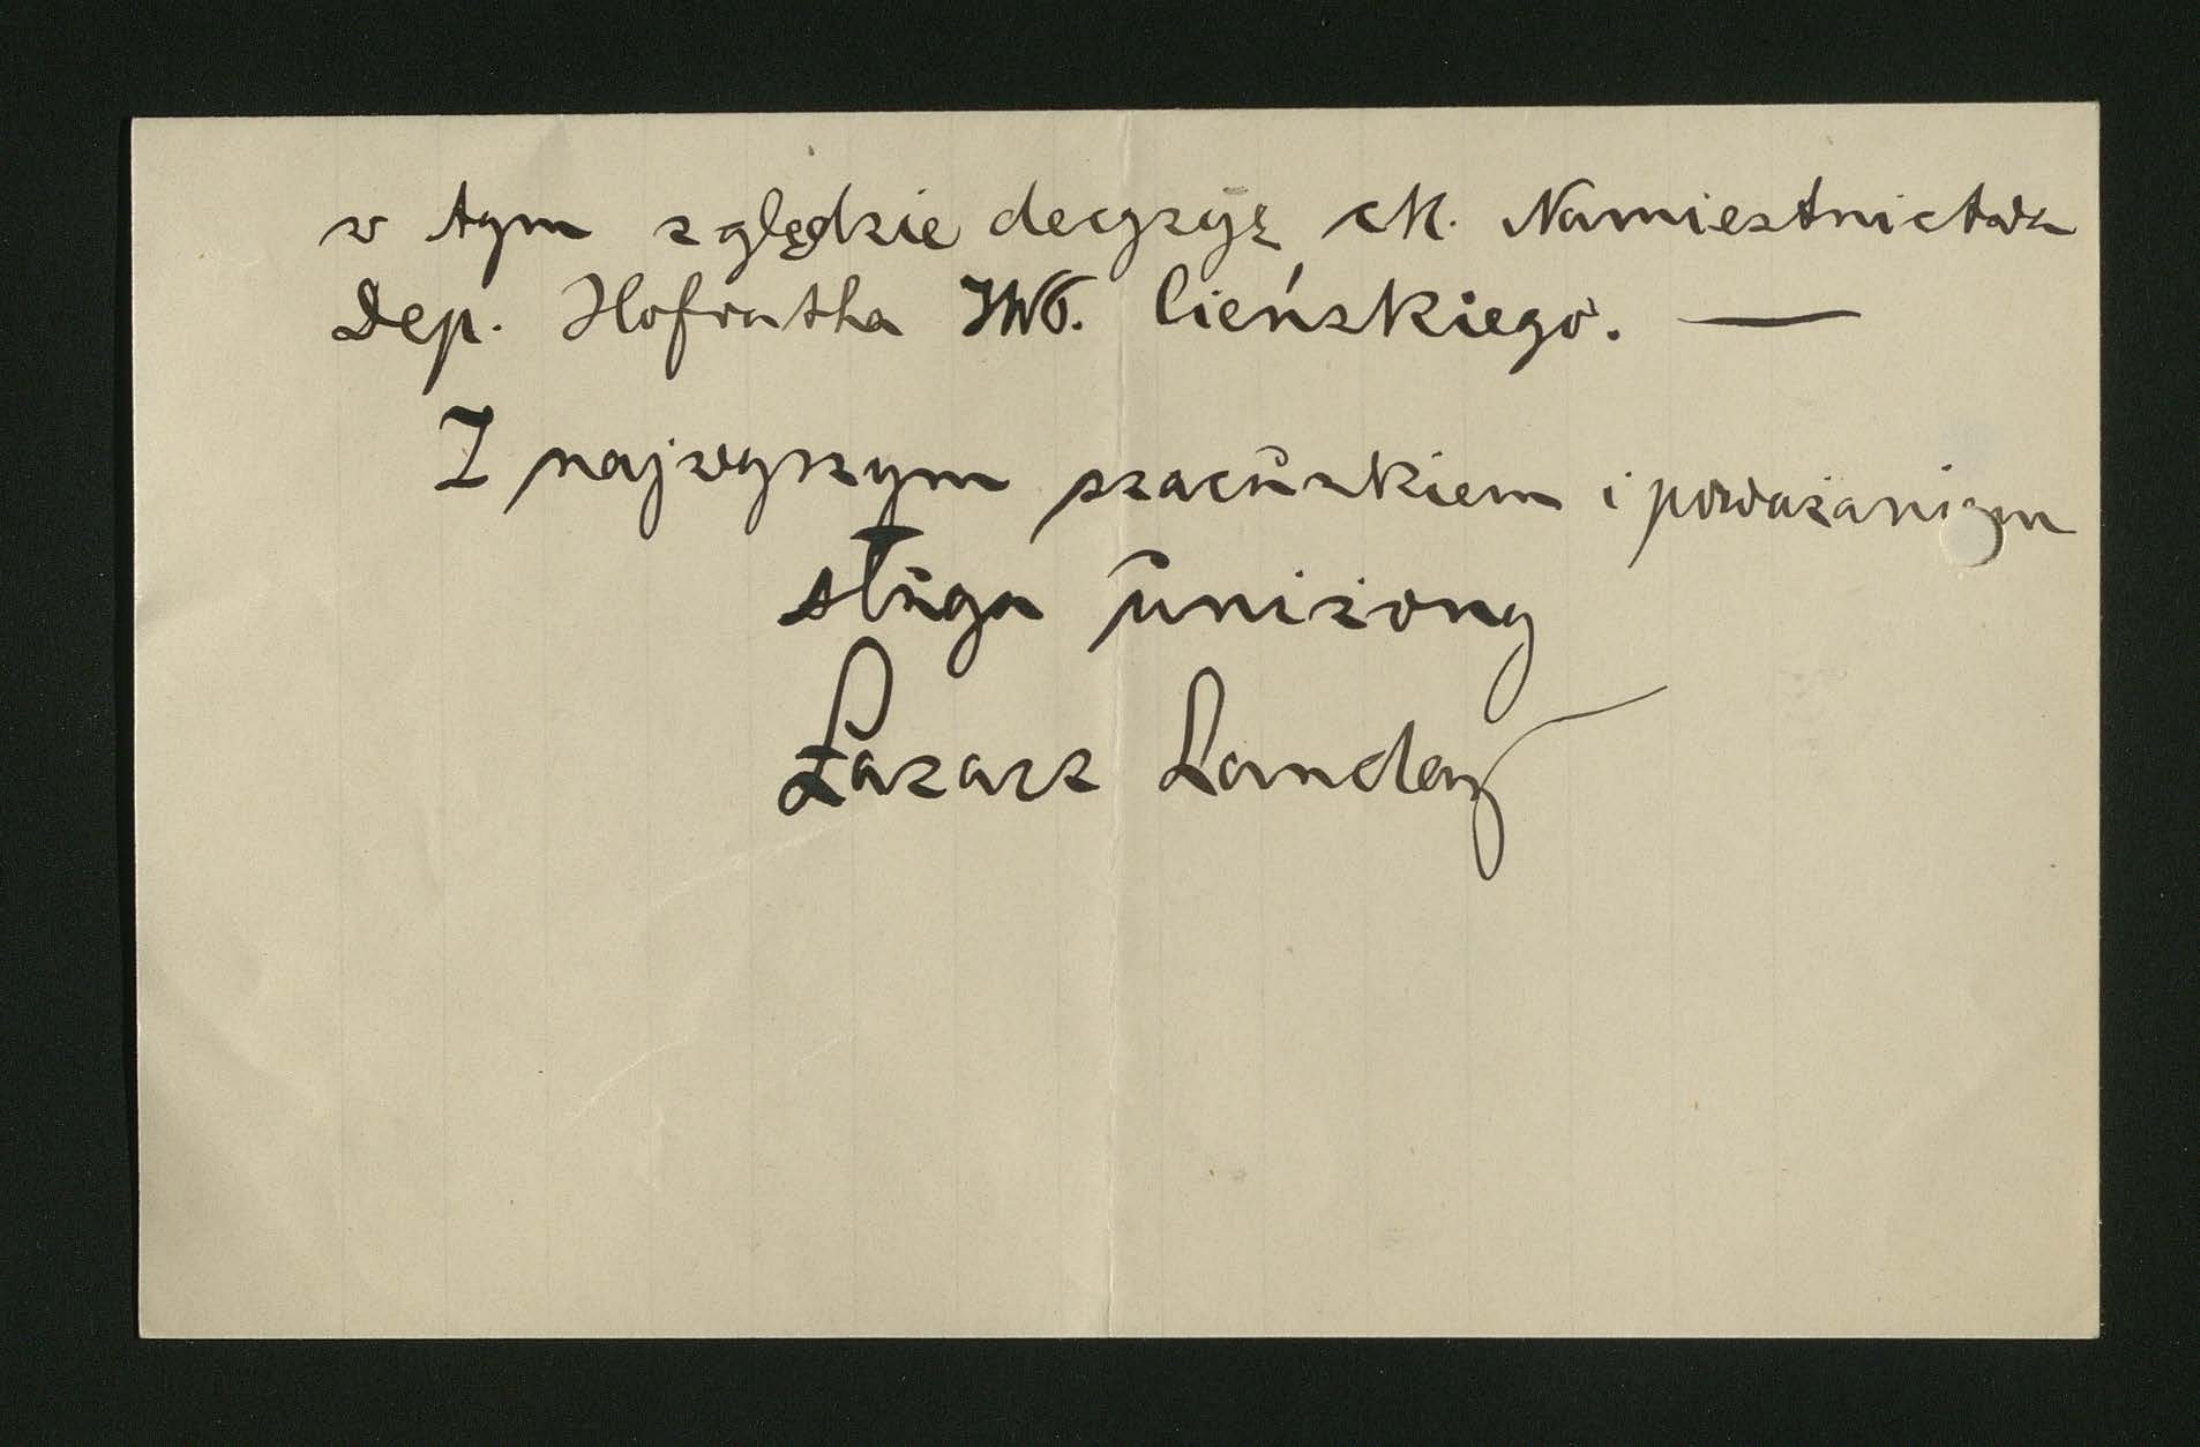 w tym zględzie decyzyję ck. Namiestnictwa
Dep. Hofratha JWG. Cieńskiego. —
Z najwyszym szacunkiem i poważaniem
sługa uniżony
Łazarz Landau